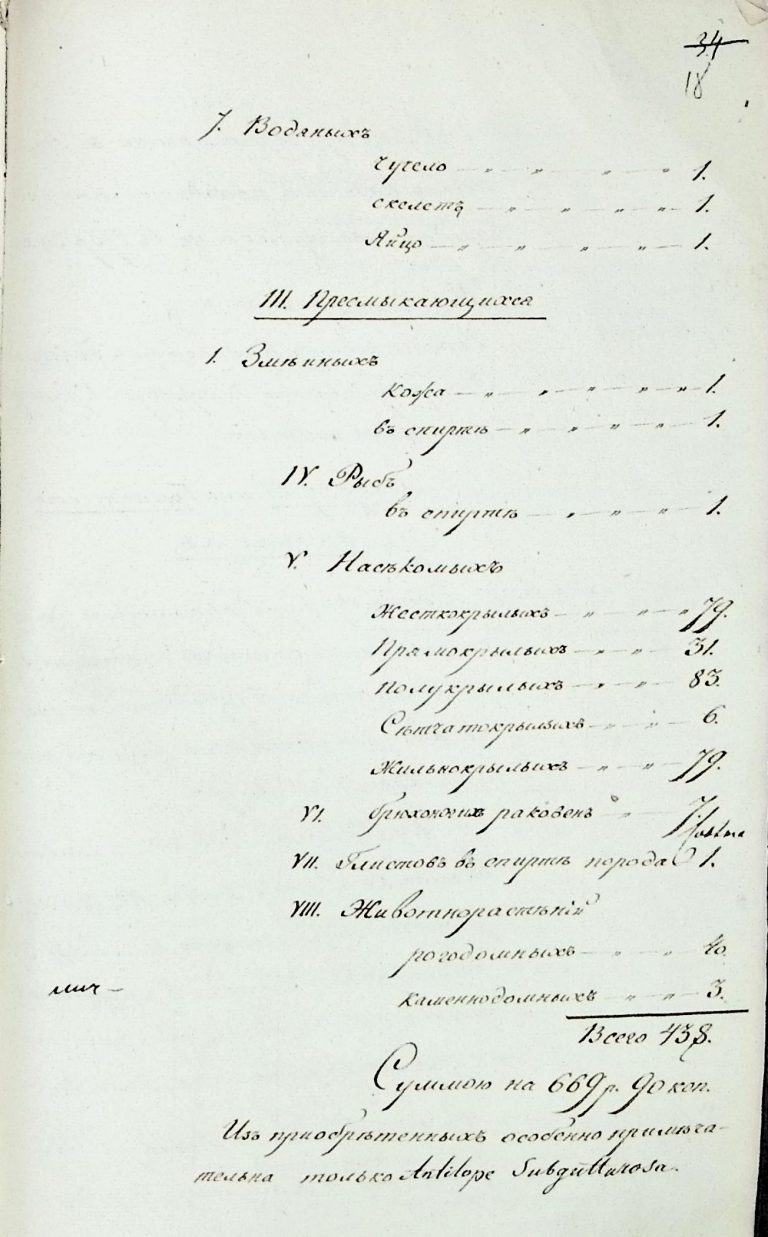 34
18
7. Водяныхъ
чучело — „ — „ — „ — „ — 1.
скелетъ — „ — „ — „ — „ — 1.
Яйцо — „ — „ — „ — „ — 1.
III. Пресмыкающихся
1. Змѣиныхъ
кожа — „ — „ — „ — „ — „ — 1.
въ спиртѣ — „ — „ — „ — „ — 1.
IV. Рыбъ
въ спиртѣ — „ — „ — „ — 1.
V. Насѣкомыхъ
Жесткокрылыхъ — „ — „ — „ 79.
Прямокрылыхъ — „ — „ — 31.
Полукрылыхъ — „ — „ — 83.
Сѣтчатокрылыхъ — „ — „ — 6.
Жильнокрылыхъ — „ — „ — 79.
VI. брюхоногихъ раковенъ „ — 7.
VII. Глистовъ въ спиртѣ порода 1.
VIII. Животнорастѣній
рогодомныхъ — „ — „ — 40.
каменнодомныхъ — „ — „ — 3.
Всего 438.
Суммою на 669 р. 90 коп.
Изъ приобрѣтенныхъ особенно примѣча-
тельна только Antilope Subgutturosa.